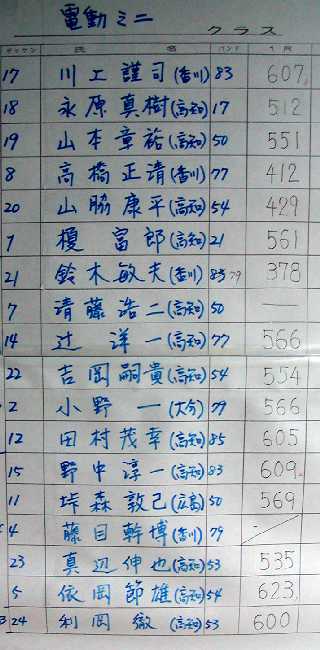 電動ミニ クラス
ゼッケン 氏 名 バンド 1R
17 川上謹司(香川) 83 607
18 永原真樹(高知) 17 512
19 山本章裕(高知) 50 551
8 高橋正清(香川) 77 412
20 山脇康平(高知) 54 429
1 榎富郎(高知) 21 561
21 鈴木敏夫(香川) 85 79 378
7 清藤浩二(高知) 50 —
14 辻洋一(高知) 77 566
22 吉岡嗣貴(高知) 54 554
2 小野一(大分) 79 566
12 田村茂幸(高知) 85 605
15 野中淳一(高知) 83 609
11 垰森敦己(広島) 50 569
4 藤目幹博(香川) 79
23 真辺伸也(高知) 53 535
5 依岡節雄(高知) 54 623
24 利岡徹(高知) 53 600